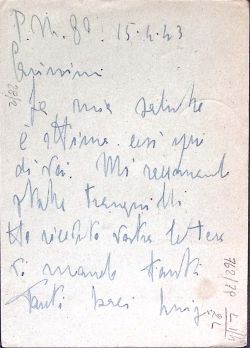 P.M. 80. 15.4.43
Carissimi
La mia salute
è ottima così spero
di voi. Mi raccomando
state tranquilli
Ho ricevuto vostra lettera
vi mando tanti
Tanti baci Luigi